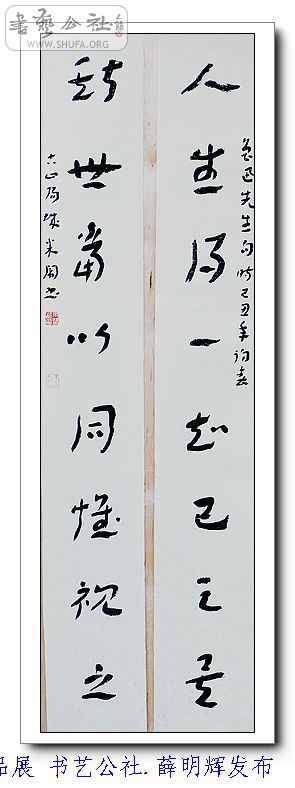 書藝公社
WWW.SHUFA.ORG
人生得一知己足矣
魯迅先生句 时己丑年
斯世當以同懷視之
品展 书艺公社.薛明辉发布